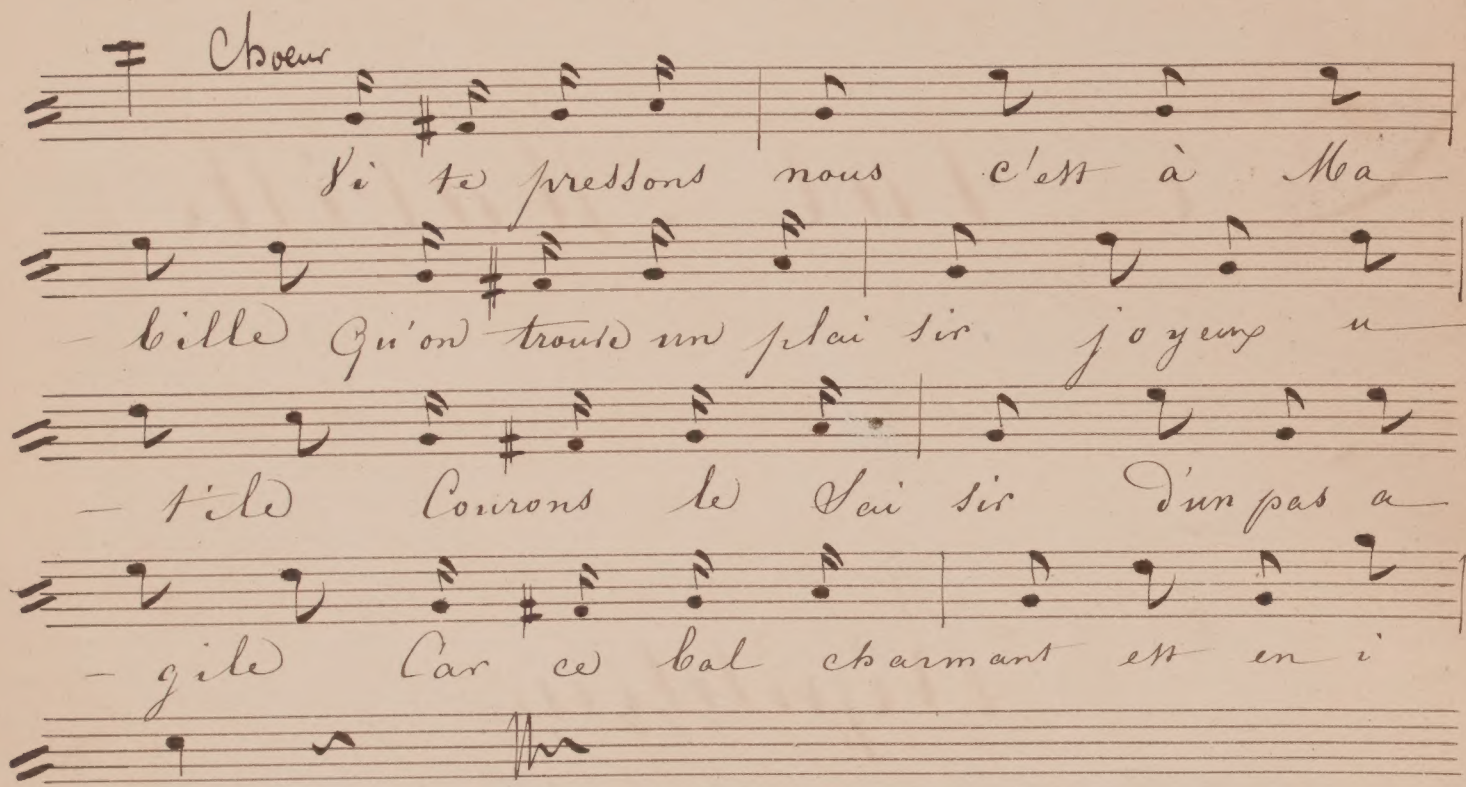 Choeur
Vi te pressons nous c'est à Ma
- bille Qu'on trouve un plai sir joyeux u
- tile Courons le Sai sir d'un pas a
- gile Car ce bal charmant est en i